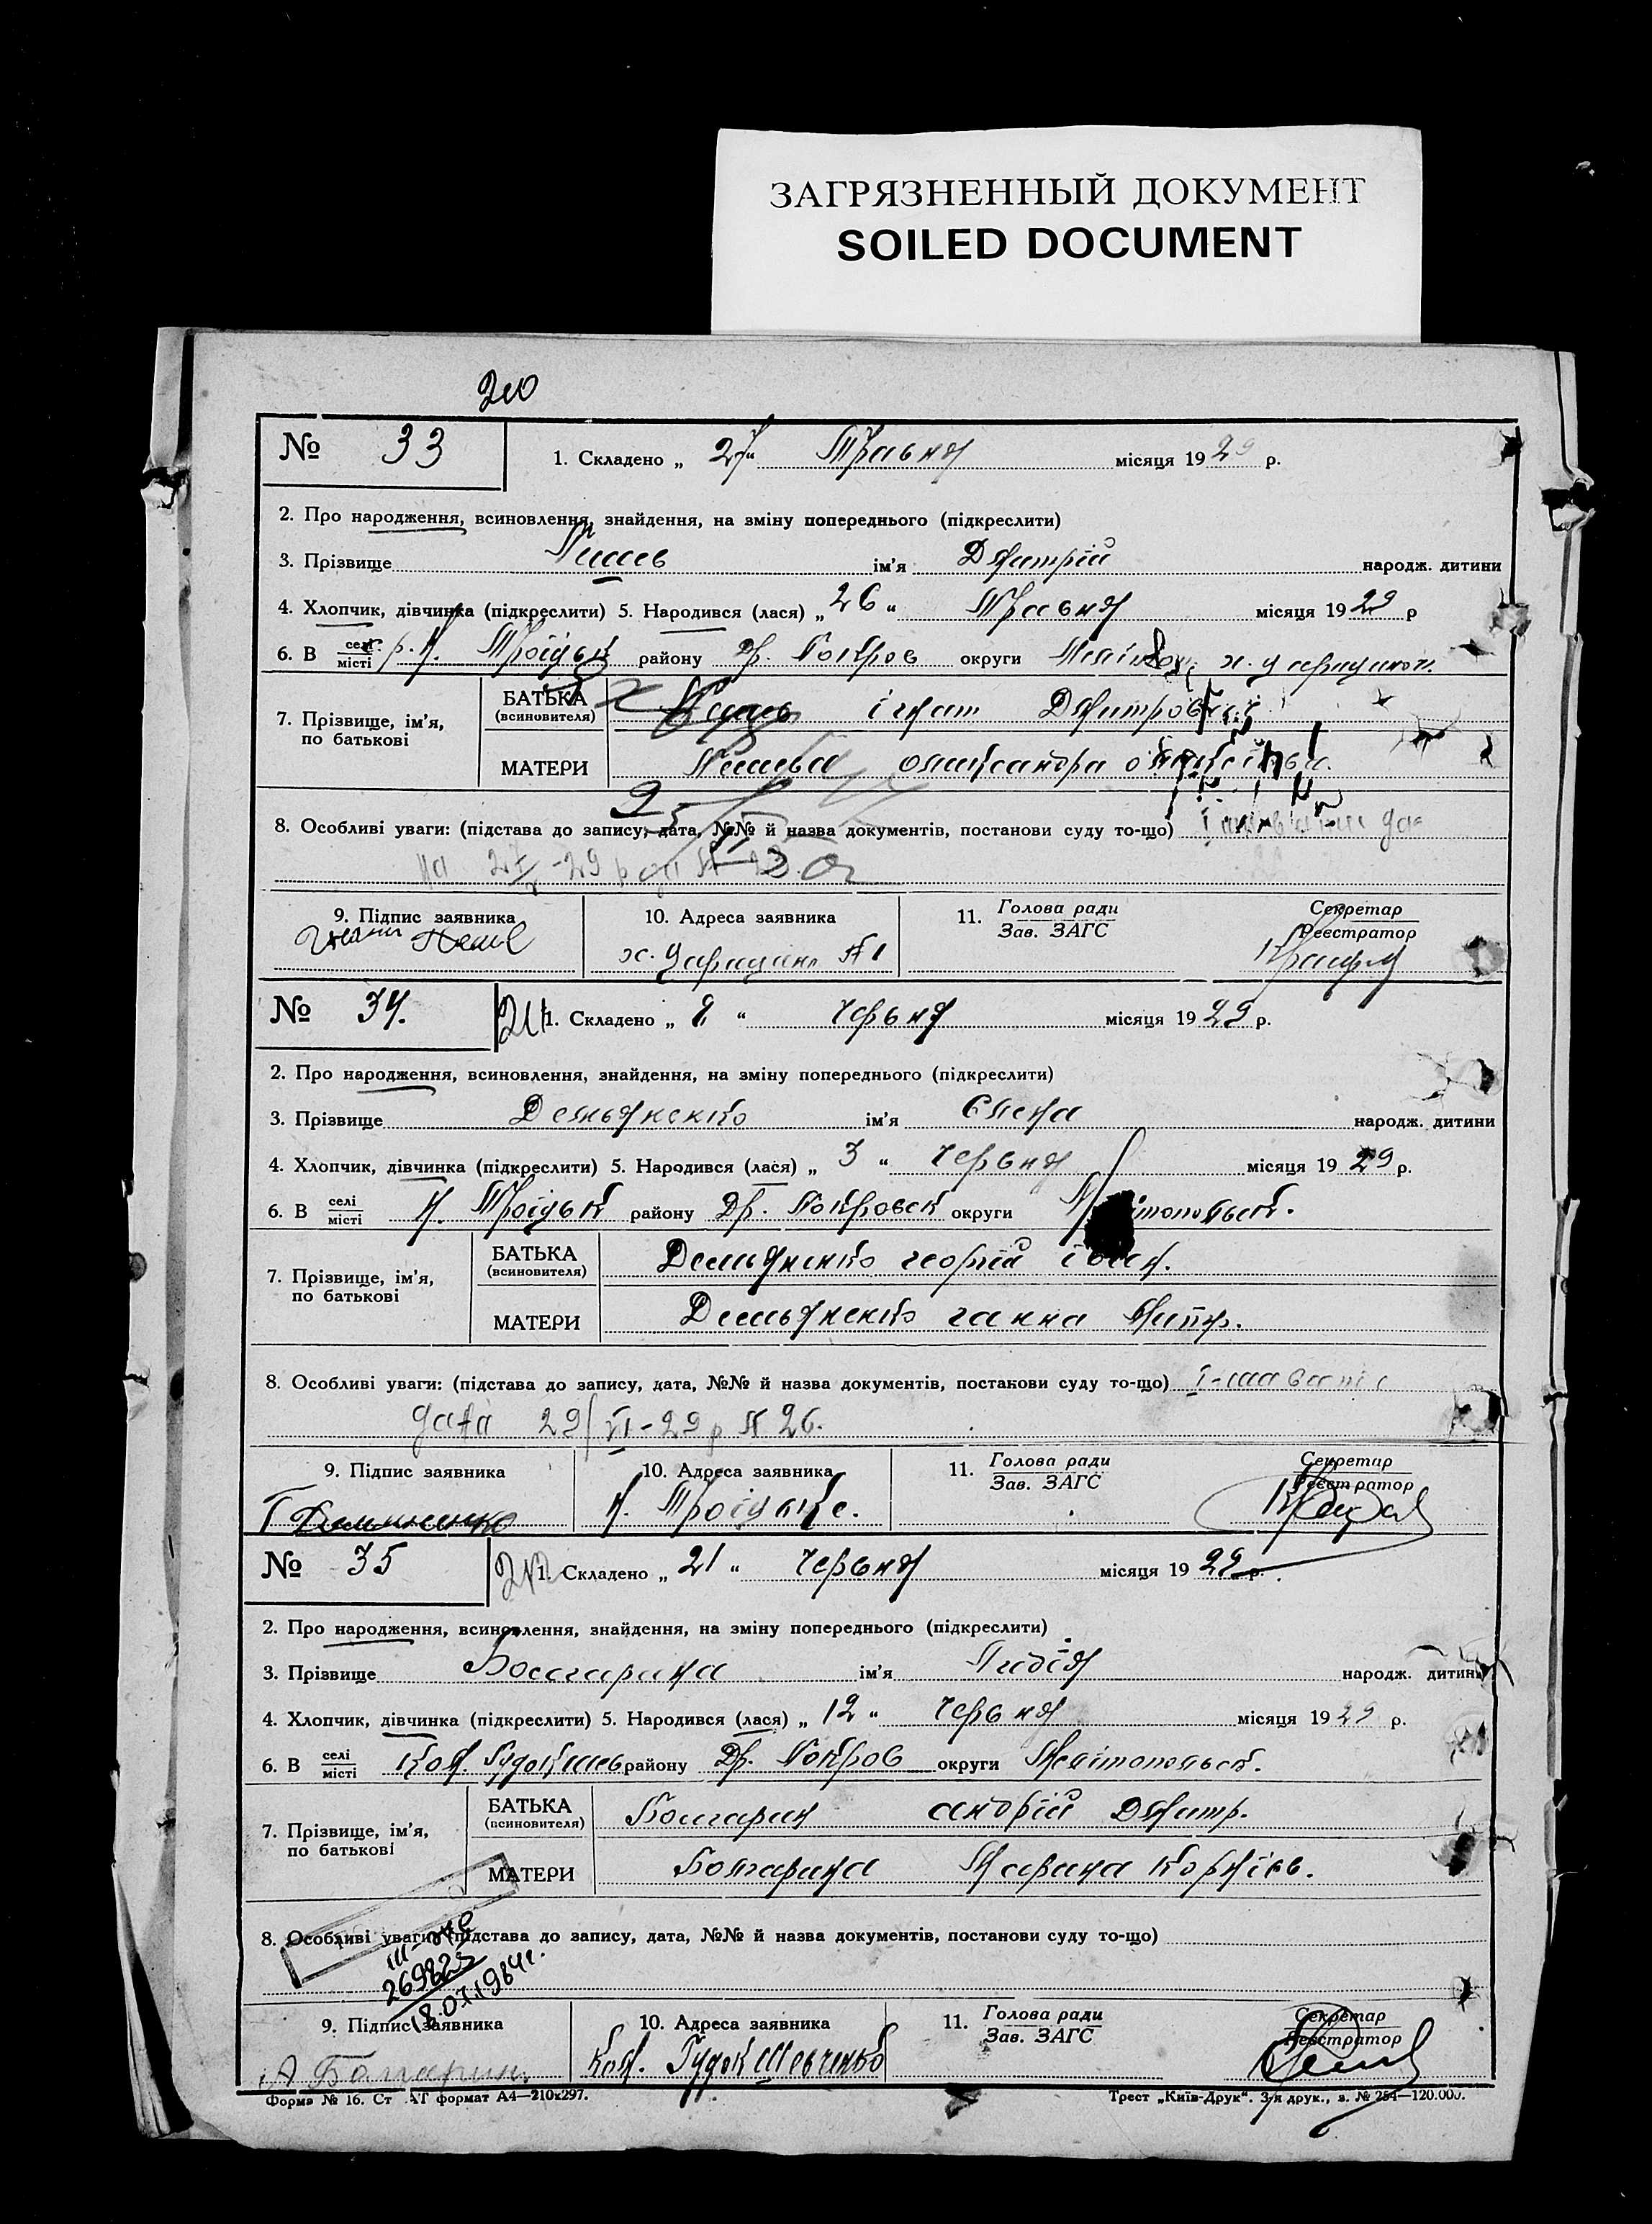 ЗАГРЯЗНЕННЫЙ ДОКУМЕНТ
SOILED DOCUMENT
210
№ 33 1. Складено „ 27 “ Травня місяця 1929 р.
2. Про народження, всиновлення, знайдення, на зміну попереднього (підкреслити)
3. Прізвище ім'я Дмитрій народж. дитини
4. Хлопчик, дівчинка (підкреслити) 5. Народився (лася) „ 26 “ Травня місяця 1929 р
6. В селі/місті Н. Троїцьк району Др. Покров округи х. Царицино
7. Прізвище, ім'я, по батькові
БАТЬКА (всиновителя) ігнат Дмитрович
МАТЕРИ олександра
8. Особливі уваги: (підстава до запису, дата, №№ й назва документів, постанови суду то-що)
9. Підпис заявника 10. Адреса заявника 11. Голова ради Зав. ЗАГС Секретар Реєстратор
х. Царицино №1
№ 34. 211 1. Складено „ “ Червня місяця 1929 р.
2. Про народження, всиновлення, знайдення, на зміну попереднього (підкреслити)
3. Прізвище Демьяненко ім'я Єлена народж. дитини
4. Хлопчик, дівчинка (підкреслити) 5. Народився (лася) „ 3 “ Червня місяця 1929 р.
6. В селі/місті Н. Троїцьк району Др. Покровск округи
7. Прізвище, ім'я, по батькові
БАТЬКА (всиновителя) Демьяненко георгій
МАТЕРИ Демьяненко ганна Дмитр.
8. Особливі уваги: (підстава до запису, дата, №№ й назва документів, постанови суду то-що)
дата 29/VI-29 р № 26.
9. Підпис заявника 10. Адреса заявника 11. Голова ради Зав. ЗАГС Секретар Реєстратор
Н. Троіцьке.
№ 35 212 1. Складено „ 21 “ Червня місяця 1929 р.
2. Про народження, всиновлення, знайдення, на зміну попереднього (підкреслити)
3. Прізвище Болгарина ім'я Лидія народж. дитини
4. Хлопчик, дівчинка (підкреслити) 5. Народився (лася) „ 12 “ Червня місяця 1929 р.
6. В селі/місті Кол. району Др. Покров округи Мелітопольск.
7. Прізвище, ім'я, по батькові
БАТЬКА (всиновителя) Болгарин андрій Дмитр.
МАТЕРИ Болгарина Марина Корніев.
8. Особливі уваги: (підстава до запису, дата, №№ й назва документів, постанови суду то-що)
269823
18.07.1984г.
9. Підпис заявника 10. Адреса заявника 11. Голова ради Зав. ЗАГС Секретар Реєстратор
А Болгарин Кол. Гудок Шевченко
Форма № 16. Ст формат А4—210x297. Трест „Київ-Друк“. 3-я друк., з. № 254—120.000.